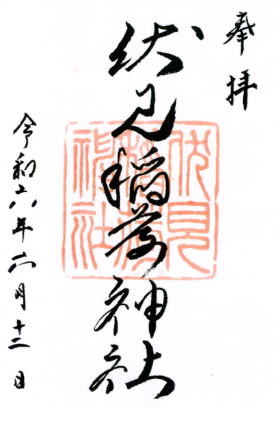 奉拝
伏見稲荷神社
伏見
神社
令和六年六月十二日